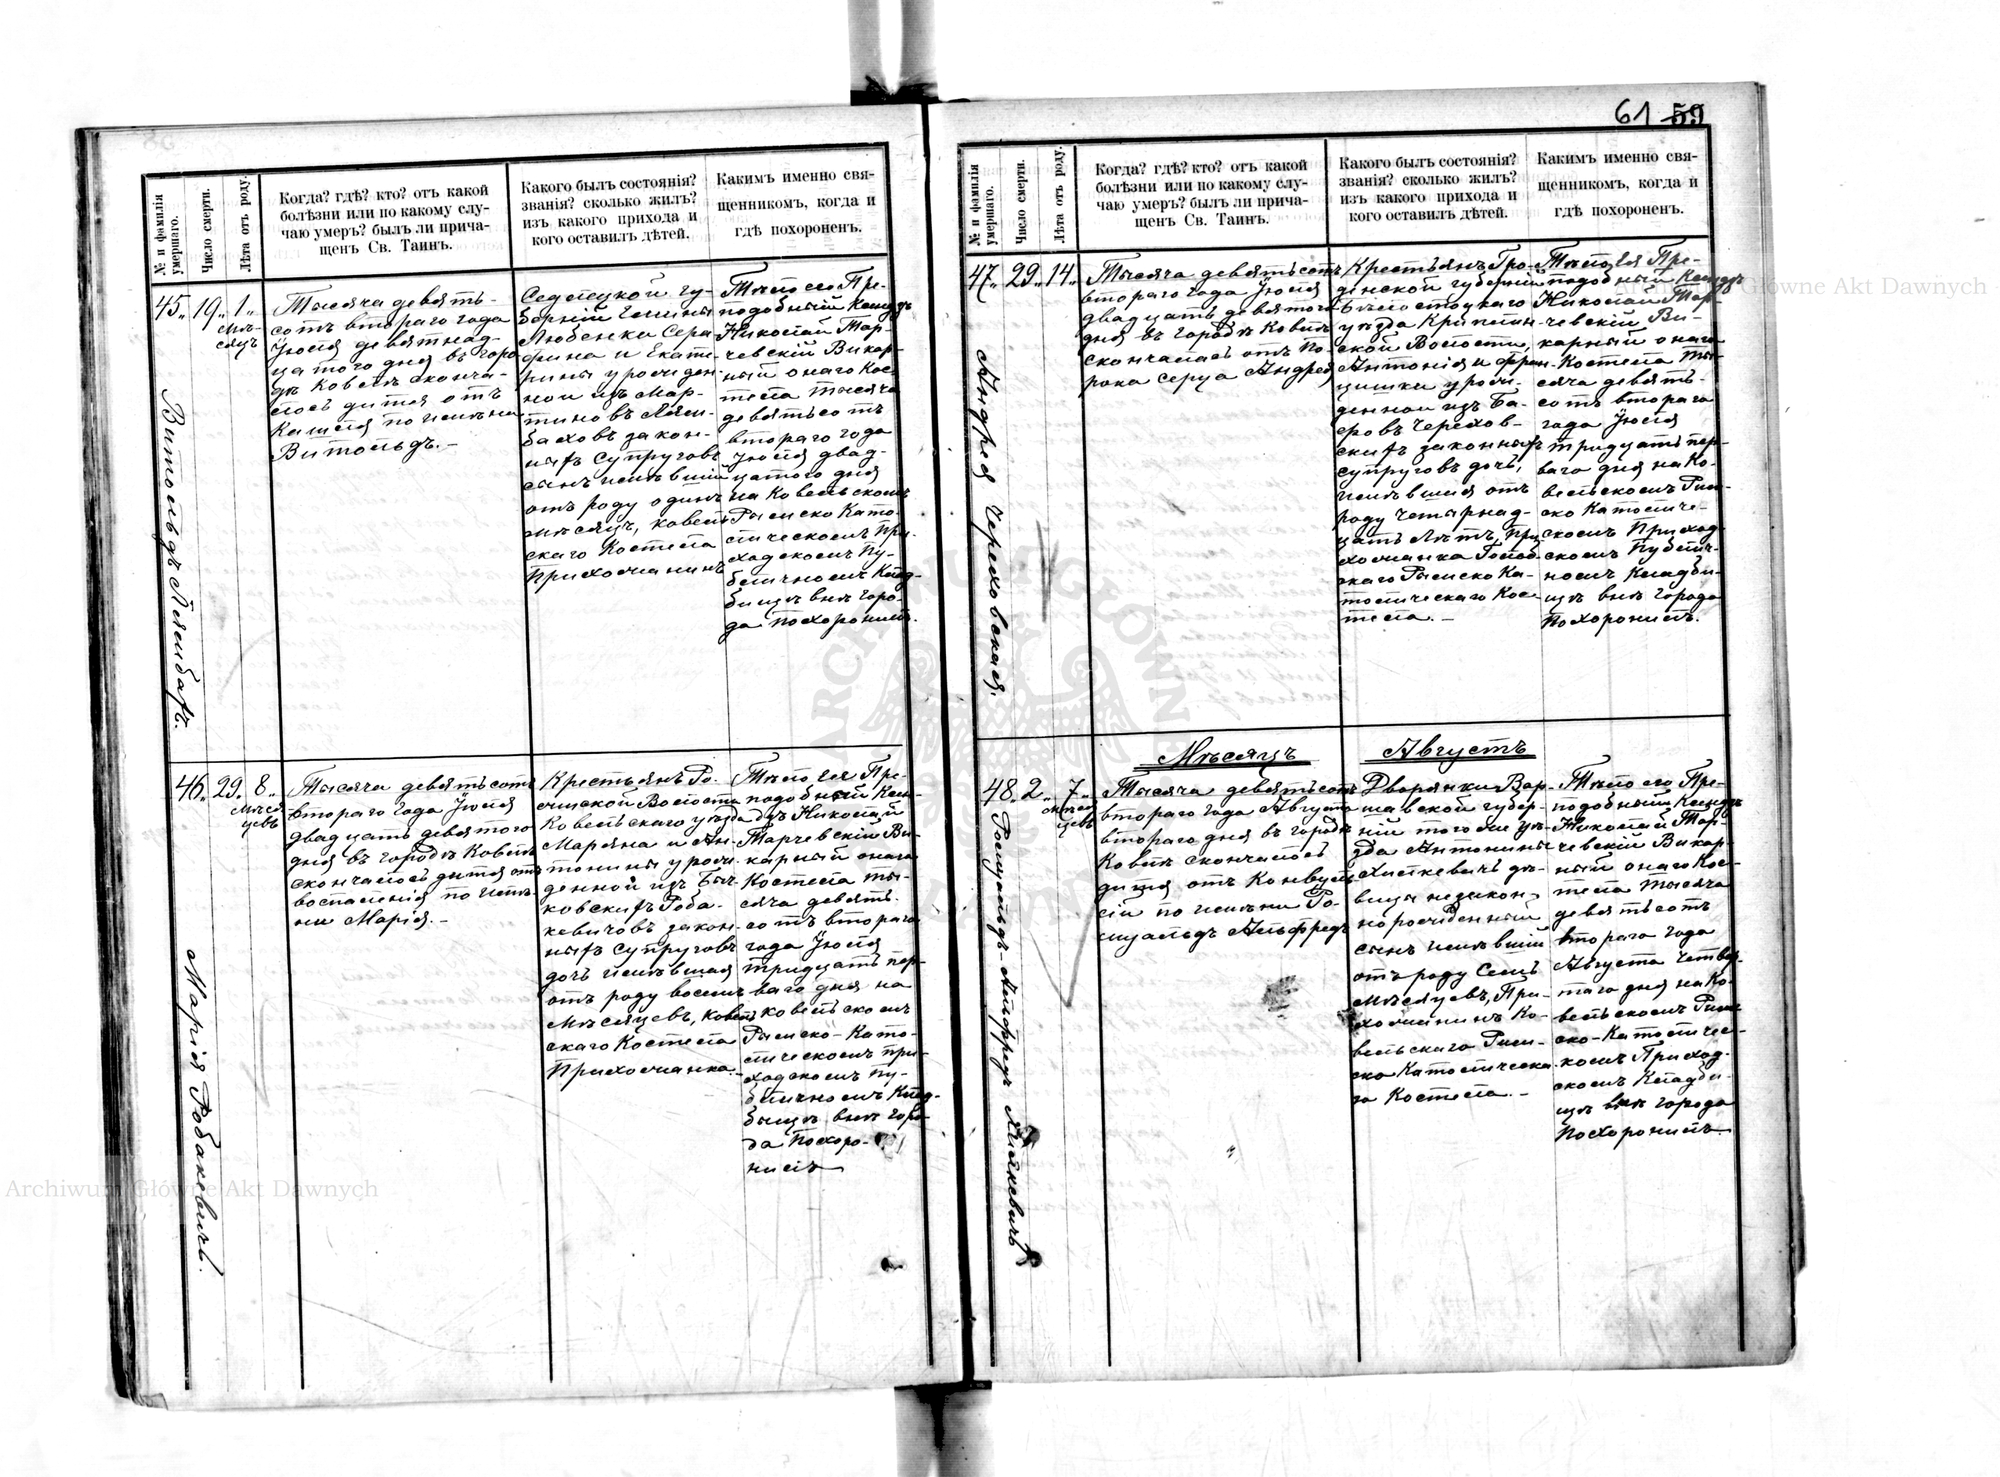 61 59
№ и фамилія умершаго.
Число смерти.
Лѣта отъ роду.
Когда? гдѣ? кто? отъ какой
болѣзни или по какому слу-
чаю умеръ? былъ ли прича-
щенъ Св. Таинъ.
Какого былъ состоянія?
званія? сколько жилъ?
изъ какого прихода и
кого оставилъ дѣтей.
Какимъ именно свя-
щенникомъ, когда и
гдѣ похороненъ.
45.
Витольдъ Лямбахъ.
19.
1.
Мѣ-
сяцъ
Тысяча девять-
сотъ второго года
Іюля девятнад-
цатого дня въ горо-
дѣ Ковелѣ сконча-
лось дитя отъ
Кашля по имени
Витольдъ.-
Седлецкой гу-
берніи Гмины
Любенка Сера
фина и Екате-
рины урожден-
ной изъ Мар-
тиновъ Лям-
баховъ закон-
ныхъ Супруговъ
сынъ имѣвшій
отъ роду одинъ
мѣсяцъ, ковель
скаго Костела
Прихожанинъ
Тѣло его Пре-
подобный Ксендзъ
Николай Тар-
чевскій Викар-
ный онаго Кос-
тела тысяча
девятьсотъ
втораго года
Іюля двад-
цатого дня
на Ковельскомъ
Римско Като-
лическомъ При-
ходскомъ Пу-
бличномъ Клад-
бищѣ внѣ горо-
да похоронилъ.
46.
Марія Робакевичъ.
29.
8.
Мѣся
цевъ
Тысяча девятьсотъ
втораго года Іюля
двадцать девятого
дня въ городѣ Ковелѣ
скончалось дитя отъ
воспаленія по име-
ни Марія.-
Крестьянъ Го-
Волости
Ковельскаго уѣзда
Марьяна и Ан-
тонины урож-
денной изъ Быч-
ковскихъ Роба-
кевичовъ закон-
ныхъ Супруговъ
дочь имѣвшая
отъ роду восемь
мѣсяцевъ, Ковель
скаго Костела
Прихожанка.-
Тѣло ея Пре-
подобный Ксен-
дзъ Николай
Тарчевскій Ви-
карный онаго
Костела ты-
сяча девять-
сотъ втораго
года Іюля
тридцать пер-
ваго дня на
ковельскомъ
Римско-Като-
лическомъ при-
ходскомъ пу-
бличномъ Клад-
бищѣ внѣ горо-
да Похоро-
нилъ
№ и фамилія умершаго.
Число смерти.
Лѣта отъ роду.
Когда? гдѣ? кто? отъ какой
болѣзни или по какому слу-
чаю умеръ? былъ ли прича-
щенъ Св. Таинъ.
Какого былъ состоянія?
званія? сколько жилъ?
изъ какого прихода и
кого оставилъ дѣтей.
Какимъ именно свя-
щенникомъ, когда и
гдѣ похороненъ.
47.
Андрея Череховская.
29.
14.
Тысяча девятьсотъ
втораго года Іюля
двадцать девятого
дня въ городѣ Ковелѣ
скончалась отъ По-
рока серца Андрея
Крестьянъ Гро-
дненской губерніи
Бѣлостоцкаго
уѣзда Крипин-
ской Волости,
Антонія и Фран-
цишки урож-
денной изъ Ба-
ровъ Черехов-
скихъ законныхъ
супруговъ дочь,
имѣвшая отъ
роду четырнад-
цать Лѣтъ, При
хожанка
скаго Римско Ка-
толическаго Кос-
тела.-
Тѣло ея Пре-
подобный Ксендзъ
Николай Тар-
чевскій Ви-
карный онаго
Костела ты-
сяча девять-
сотъ втораго
года Іюля
тридцать пер-
ваго дня на Ко-
вельскомъ Рим-
ско Католиче-
скомъ Приход-
скомъ Публич-
номъ Кладби-
щѣ внѣ города
Похоронилъ.
Мѣсяцъ Августъ
48.
Ромуальдъ-Альфредъ Хилкевичъ
2.
7.
Мѣся
цевъ
Тысяча девятьсотъ
втораго года Августа
втораго дня въ городѣ
Ковелѣ скончалось
дитя отъ Конвуль-
сіи по имени Ро-
муальдъ Альфредъ
Дворянки Вар-
шавской губер-
ніи того же уѣз-
да Антонины
Хилкевичъ дѣ-
вицы незакон-
норожденный
сынъ имѣвшій
отъ роду Семь
мѣсяцевъ, При-
хожанинъ Ко-
вельскаго Рим-
ско Католическа
го Костела.-
Тѣло его Пре-
подобный Ксендзъ
Николай Тар-
чевскій Викар-
ный онаго Кос-
тела тысяча
девятьсотъ
втораго года
Августа четвер-
таго дня на Ко-
вельскомъ Рим-
ско-Католичес-
комъ Приход-
скомъ Кладби-
щѣ внѣ города
Похоронилъ.
Archiwum Główne Akt Dawnych
Archiwum Główne Akt Dawnych
ARCHIWUM GŁÓWNE